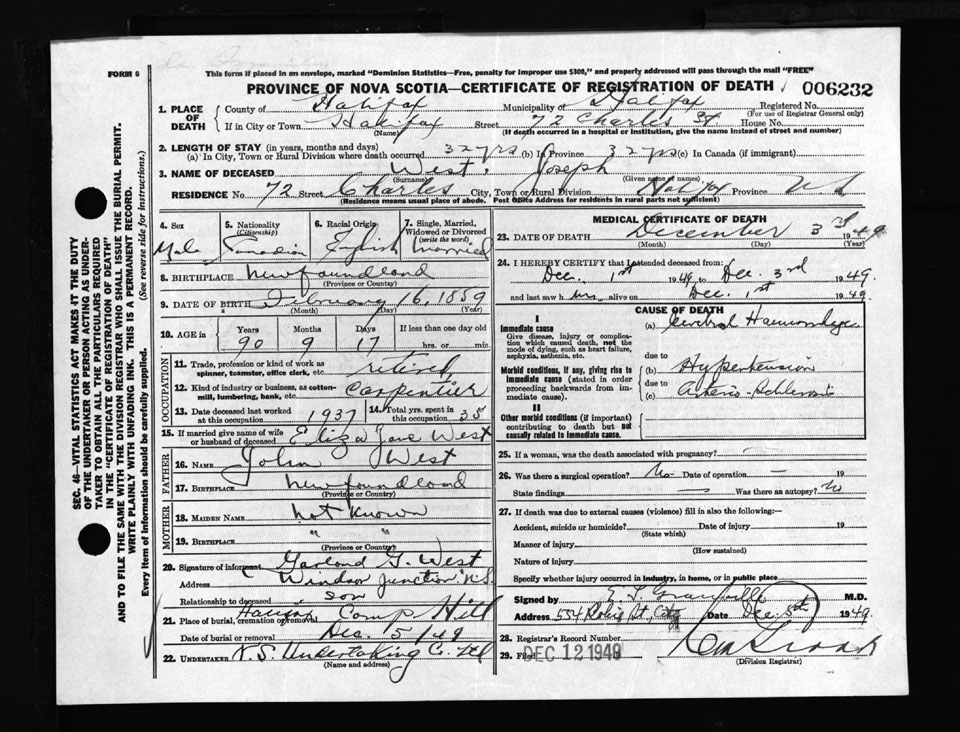 FORM 6
This form if placed in an envelope, marked "Dominion Statistics—Free, penalty for improper use $300," and properly addressed will pass through the mail "FREE"
PROVINCE OF NOVA SCOTIA—CERTIFICATE OF REGISTRATION OF DEATH 006232
SEC. 46—VITAL STATISTICS ACT MAKES IT THE DUTY
OF THE UNDERTAKER OR PERSON ACTING AS UNDER-
TAKER TO OBTAIN ALL THE PARTICULARS REQUIRED
IN THE "CERTIFICATE OF REGISTRATION OF DEATH"
AND TO FILE THE SAME WITH THE DIVISION REGISTRAR WHO SHALL ISSUE THE BURIAL PERMIT.
WRITE PLAINLY WITH UNFADING INK. THIS IS A PERMANENT RECORD.
Every item of Information should be carefully supplied. (See reverse side for instructions.)
1. PLACE OF DEATH
County of Halifax Municipality of Halifax Registered No.
(For use of Registrar General only)
If in City or Town Halifax Street 72 Charles St House No.
(Name) (If death occurred in a hospital or institution, give the name instead of street and number)
2. LENGTH OF STAY (in years, months and days)
(a) In City, Town or Rural Division where death occurred 32 yrs (b) In Province 32 yrs (c) In Canada (if immigrant)
3. NAME OF DECEASED West, Joseph
(Surname) (Given name or names)
RESIDENCE No. 72 Street Charles City, Town or Rural Division Halifax Province N.S
(Residence means usual place of abode. Post Office Address for residents in rural parts not sufficient)
4. Sex
Male
5. Nationality
(Citizenship)
Canadian
6. Racial Origin
English
7. Single, Married,
Widowed or Divorced
(write the word)
Married
8. BIRTHPLACE Newfoundland
(Province or Country)
9. DATE OF BIRTH February 16, 1859
(Month) (Day) (Year)
10. AGE in Years Months Days If less than one day old
90 9 17 hrs. or min.
OCCUPATION
11. Trade, profession or kind of work as
spinner, teamster, office clerk, etc. retired
12. Kind of industry or business, as cotton-
mill, lumbering, bank, etc. Carpentier
13. Date deceased last worked
at this occupation 1937
14. Total yrs. spent in
this occupation 35
15. If married give name of wife
or husband of deceased Eliza Jane West
FATHER
16. NAME John West
17. BIRTHPLACE Newfoundland
(Province or Country)
MOTHER
18. MAIDEN NAME not known
19. BIRTHPLACE " "
(Province or Country)
20. Signature of informant Garland G. West
Address Windsor Junction N.S.
Relationship to deceased son
21. Place of burial, cremation or removal Halifax Camp Hill
Date of burial or removal Dec. 5/49
22. UNDERTAKER N.S. Undertaking Co. Ltd
(Name and address)
MEDICAL CERTIFICATE OF DEATH
23. DATE OF DEATH December 3rd 1949
(Month) (Day) (Year)
24. I HEREBY CERTIFY that I attended deceased from:
Dec. 1st 1949, to Dec. 3rd 1949.
and last saw him alive on Dec. 1st 1949.
CAUSE OF DEATH
I
Immediate cause
Give disease, injury or complica-
tion which caused death, not the
mode of dying, such as heart failure,
asphyxia, asthenia, etc.
(a) Cerebral Haemorrhage
due to
Morbid conditions, if any, giving rise to
immediate cause (stated in order
proceeding backwards from im-
mediate cause).
(b) Hypertension
due to
(c) Arterio-Schlerosis
II
Other morbid conditions (if important)
contributing to death but not
causally related to immediate cause.
25. If a woman, was the death associated with pregnancy? —
26. Was there a surgical operation? No Date of operation — 19
State findings — Was there an autopsy? No
27. If death was due to external causes (violence) fill in also the following:—
Accident, suicide or homicide? Date of injury 19
(State which)
Manner of injury
(How sustained)
Nature of injury
Specify whether injury occurred in industry, in home, or in public place
Signed by M.D.
Address. 554 Robie St, City Date Dec. 5th 1949.
28. Registrar's Record Number
29. Filed DEC 12 1949
(Division Registrar)